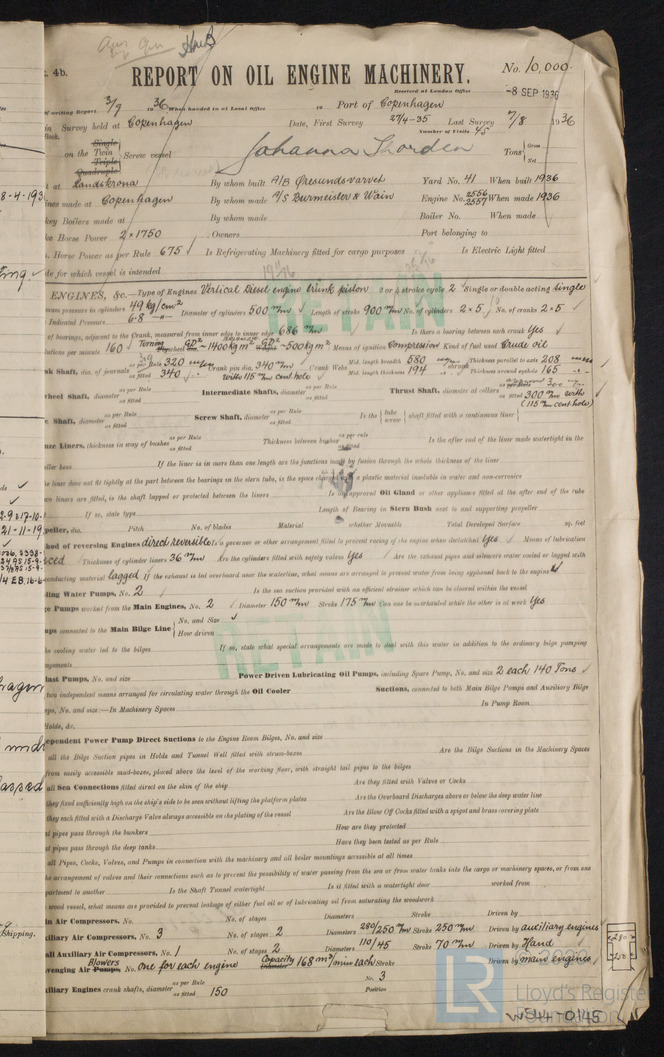 HueB
t. 4b.
REPORT ON OIL ENGINE MACHINERY.
No. 10,000.
Received at London Office
-8 SEP 1936
of writing Report 3/9 1936 When handed in at Local Office 19 Port of Copenhagen
in Survey held at Copenhagen Date, First Survey 27/4-35 Last Survey 7/8 1936
Book. Number of Visits 45
on the Single Twin Triple Quadruple Screw vessel Johanna Thordén Tons Gross Net
t at Landskrona By whom built A/B Öresundsvarvet Yard No. 41 When built 1936
nes made at Copenhagen By whom made A/S Burmeister & Wain Engine No. 2556 2557 When made 1936
key Boilers made at By whom made Boiler No. When made
ke Horse Power 2×1750 Owners Port belonging to
. Horse Power as per Rule 675 Is Refrigerating Machinery fitted for cargo purposes Is Electric Light fitted
de for which vessel is intended
RETAIN
ENGINES, &c.—Type of Engines Vertical Diesel engine trunk piston 2 or 4 stroke cycle 2 Single or double acting Single
mum pressure in cylinders 49 kg/cm² Diameter of cylinders 500 m/m Length of stroke 900 m/m No. of cylinders 2×5 No. of cranks 2×5
Indicated Pressure 6.8 -"-
of bearings, adjacent to the Crank, measured from inner edge to inner edge 686 m/m Is there a bearing between each crank Yes
lutions per minute 160 Turning Flywheel GD² ~1400 kgm² GD² ~500 kgm² Means of ignition Compression Kind of fuel used Crude oil
nk Shaft, dia. of journals as per Rule 320 m/m as fitted 340 Crank pin dia. 340 m/m with 115 m/m cent. hole Crank Webs Mid. length breadth 580 Mid. length thickness 194 shrunk Thickness parallel to axis 208 Thickness around eyehole 165
wheel Shaft, diameter as per Rule as fitted Intermediate Shafts, diameter as per Rule as fitted Thrust Shaft, diameter at collars as per Rule 300 as fitted 300 m/m with (115 m/m cent. hole)
e Shaft, diameter as per Rule as fitted Screw Shaft, diameter as per Rule as fitted Is the tube screw shaft fitted with a continuous liner
nze Liners, thickness in way of bushes as per Rule as fitted Thickness between bushes as per rule as fitted Is the after end of the liner made watertight in the
eller boss If the liner is in more than one length are the junctions made by fusion through the whole thickness of the liner
he liner does not fit tightly at the part between the bearings in the stern tube, is the space charged with a plastic material insoluble in water and non-corrosive
wo liners are fitted, is the shaft lapped or protected between the liners Is an approved Oil Gland or other appliance fitted at the after end of the tube
If so, state type Length of Bearing in Stern Bush next to and supporting propeller
peller, dia. Pitch No. of blades Material whether Moveable Total Developed Surface sq. feet
hod of reversing Engines direct reversible Is a governor or other arrangement fitted to prevent racing of the engine when declutched Yes Means of lubrication
ced Thickness of cylinder liners 36 m/m Are the cylinders fitted with safety valves Yes Are the exhaust pipes and silencers water cooled or lagged with
onducting material lagged If the exhaust is led overboard near the waterline, what means are arranged to prevent water from being syphoned back to the engine
ling Water Pumps, No. 2 Is the sea suction provided with an efficient strainer which can be cleared within the vessel
ge Pumps worked from the Main Engines, No. 2 Diameter 150 m/m Stroke 175 m/m Can one be overhauled while the other is at work Yes
mps connected to the Main Bilge Line No. and Size How driven
RETAIN
he cooling water led to the bilges If so, state what special arrangements are made to deal with this water in addition to the ordinary bilge pumping
ngements
last Pumps, No. and size Power Driven Lubricating Oil Pumps, including Spare Pump, No. and size 2 each 140 Tons
two independent means arranged for circulating water through the Oil Cooler Suctions, connected to both Main Bilge Pumps and Auxiliary Bilge
ps, No. and size:—In Machinery Spaces In Pump Room
Holds, &c.
ependent Power Pump Direct Suctions to the Engine Room Bilges, No. and size
all the Bilge Suction pipes in Holds and Tunnel Well fitted with strum-boxes Are the Bilge Suctions in the Machinery Spaces
from easily accessible mud-boxes, placed above the level of the working floor, with straight tail pipes to the bilges
all Sea Connections fitted direct on the skin of the ship Are they fitted with Valves or Cocks
they fixed sufficiently high on the ship's side to be seen without lifting the platform plates Are the Overboard Discharges above or below the deep water line
they each fitted with a Discharge Valve always accessible on the plating of the vessel Are the Blow Off Cocks fitted with a spigot and brass covering plate
t pipes pass through the bunkers How are they protected
t pipes pass through the deep tanks Have they been tested as per Rule
all Pipes, Cocks, Valves, and Pumps in connection with the machinery and all boiler mountings accessible at all times
he arrangement of valves and their connections such as to prevent the possibility of water passing from the sea or from water tanks into the cargo or machinery spaces, or from one
partment to another Is the Shaft Tunnel watertight Is it fitted with a watertight door worked from
wood vessel, what means are provided to prevent leakage of either fuel oil or of lubricating oil from saturating the woodwork
in Air Compressors, No. No. of stages Diameters Stroke Driven by
xiliary Air Compressors, No. 3 No. of stages 2 Diameters 280/250 m/m Stroke 250 m/m Driven by auxiliary engines
all Auxiliary Air Compressors, No. 1 No. of stages 2 Diameters 110/45 Stroke 70 m/m Driven by Hand
venging Air Pumps, Blowers No. one for each engine Diameter Capacity 168 m³/min each Stroke Driven by main engines
xiliary Engines crank shafts, diameter as per Rule as fitted 150 No. 3 Position
LR
Lloyd's Register
Foundation
W544-0145